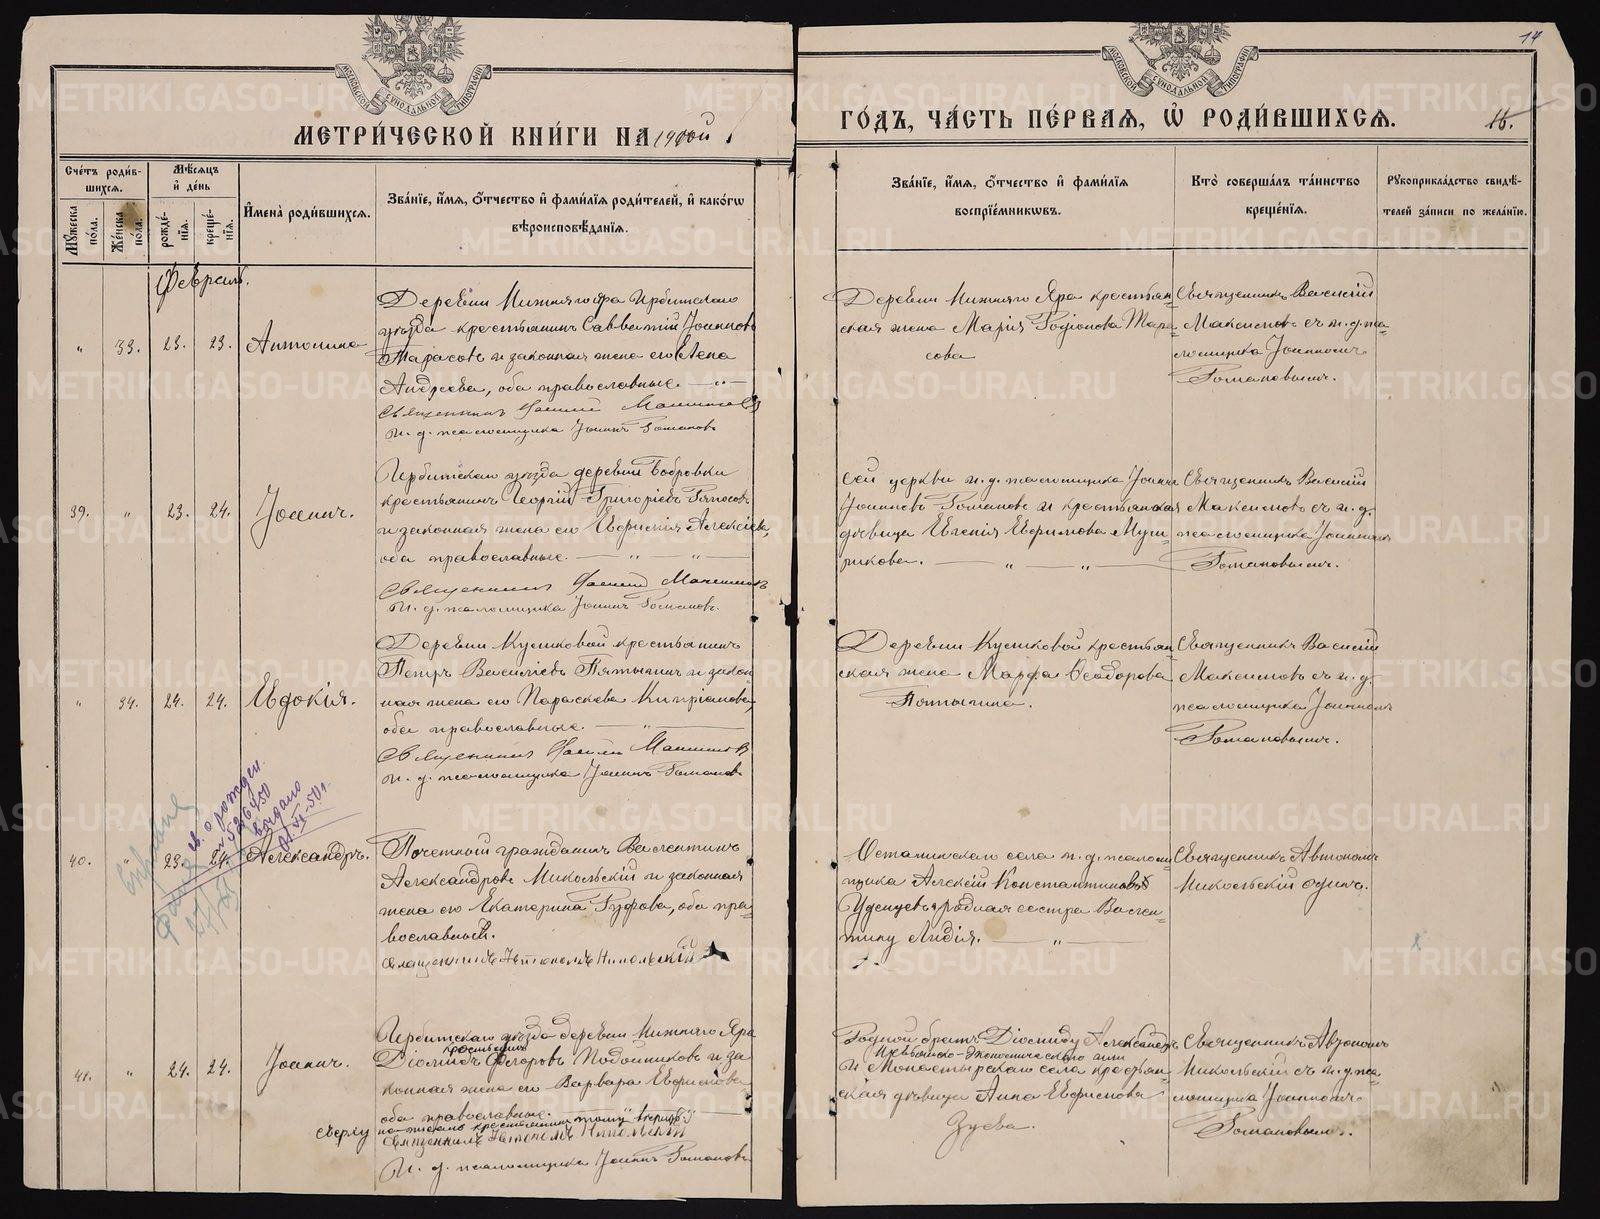 14
МЕТРИ́ЧЕСКОЙ КНИ́ГИ НА 1900й
ГО́ДЪ, ЧА́СТЬ ПЕ́РВАѦ, Ѽ РОДИ́ВШИХСѦ.
15.
Сче́тъ роди́в-
шихсѧ.
Мꙋ́жеска по́ла.
Же́нска по́ла.
Мѣ́сѧцъ
и҆ де́нь
рожде́-
нїѧ.
креще́-
нїѧ.
И҆мена̀ роди́вшихсѧ.
Зва́нїе, и҆́мѧ, ѻ҆́тчество и҆ фами́лїѧ роди́телей, и҆ како́гѡ
вѣроисповѣ́данїѧ.
Зва́нїе, и҆́мѧ, ѻ҆́тчество и҆ фами́лїѧ
воспрїе́мникѡвъ.
Кто̀ соверша́лъ та́инство
креще́нїѧ.
Рꙋкоприкла́дство свидѣ́-
телей за́писи по жела́нїю.
Февраль.
" 33. 23. 23. Антонина
Деревни Нижняго Яра Ирбитскаго
уѣзда крестьянинъ Савватій Іоанновъ
Тарасовъ и законная жена его Анна
Андреева, оба православные. — " —
Священникъ Василій Максимовъ
И. д. псаломщика Іоаннъ Романовъ
Деревни Нижняго Яра крестьян-
ская жена Марія Родіонова Тара-
сова
Священникъ Василій
Максимовъ съ и. д. пса-
ломщика Іоанномъ
Романовымъ.
39. " 23. 24. Іоаннъ.
Ирбитскаго уѣзда деревни Бобровки
крестьянинъ Георгій Григоріевъ
и законная жена его Евфимія Алексіева,
оба православные. — " — " —
Священникъ Василій Максимовъ
И. д. псаломщика Іоаннъ Романовъ.
Сей церкви и. д. псаломщика Іоаннъ
Іоанновъ Романовъ и крестьянская
дѣвица Евгенія Евфимова
рикова. — " — " —
Священникъ Василій
Максимовъ съ и. д.
псаломщика Іоанномъ
Романовымъ.
" 34. 24. 24. Евдокія.
Деревни Кушковой крестьянинъ
Петръ Василіевъ и закон-
ная жена его Параскева Кипріанова,
оба православные. — " —
Священникъ Василій Максимовъ
И. д. псаломщика Іоаннъ Романовъ
Деревни Кушковой крестьян-
ская жена Марфа Ѳеодорова
Священникъ Василій
Максимовъ съ и. д.
псаломщика Іоанномъ
Романовымъ.
св. о рожден.
выдано
40. " 23. 24. Александръ.
Почетный гражданинъ Валентинъ
Александровъ Никольскій и законная
жена его Екатерина Руфова, оба пра-
вославные.
Священникъ Автономъ Никольскій
Останинскаго села и. д. псалом-
щика Алексій Константиновъ
Удинцевъ и родная сестра Вален-
тину Лидія. — " —
Священникъ Автономъ
Никольскій одинъ.
41. " 24. 24. Іоаннъ.
Ирбитскаго уѣзда деревни Нижняго Яра
крестьянинъ
Діомидъ Ѳедоровъ Подойниковъ и за-
конная жена его Варвара Евфимова
оба православные.
сверху написано крестьянинъ тому вѣрить
Священникъ Автономъ Никольскій
И. д. псаломщика Іоаннъ Романовъ
Родной братъ Діомиду Александръ
Невьянско-экономическаго или
и Монастырскаго села крестьян-
ская дѣвица Анна Евфимова
Зуева.
Священникъ Автономъ
Никольскій съ и. д. пса-
ломщика Іоанномъ
Романовымъ.
METRIKI.GASO-URAL.RU